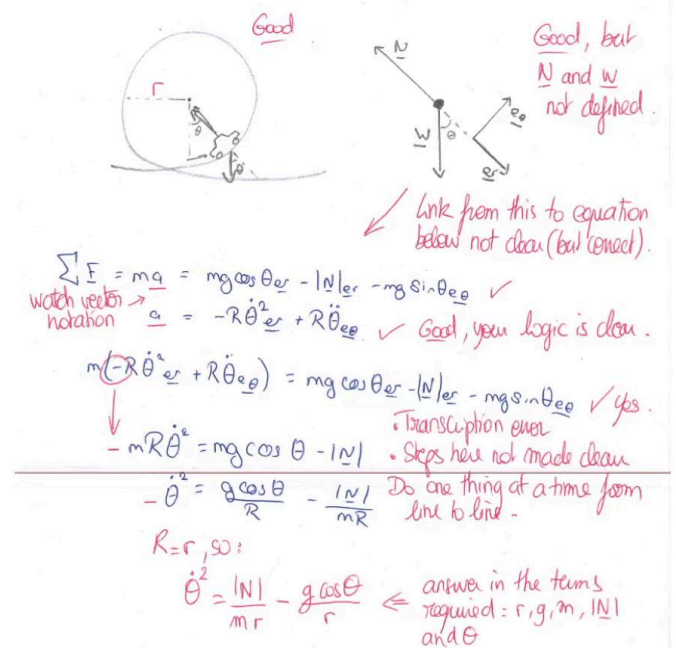 Good
r
θ
θ
N
W
θ
eθ
er
Good, but
N and w
not defined.
Link from this to equation
below not clear (but correct).
∑ F = ma = mg cos θ er - |N| er - mg sin θ eθ ✓
watch vector →
notation
a = -Rθ̇² er + Rθ̈ eθ ✓ Good, your logic is clear.
m(-Rθ̇² er + Rθ̈ eθ) = mg cos θ er - |N| er - mg sin θ eθ ✓ yes.
• Transcription error
- mRθ̇² = mg cos θ - |N|
• Steps here not made clear
- θ̇² = g cos θ / R - |N| / mR
Do one thing at a time from
line to line -
R = r, so:
θ̇² = |N| / mr - g cos θ / r
⇐ answer in the terms
required: r, g, m, |N|
and θ